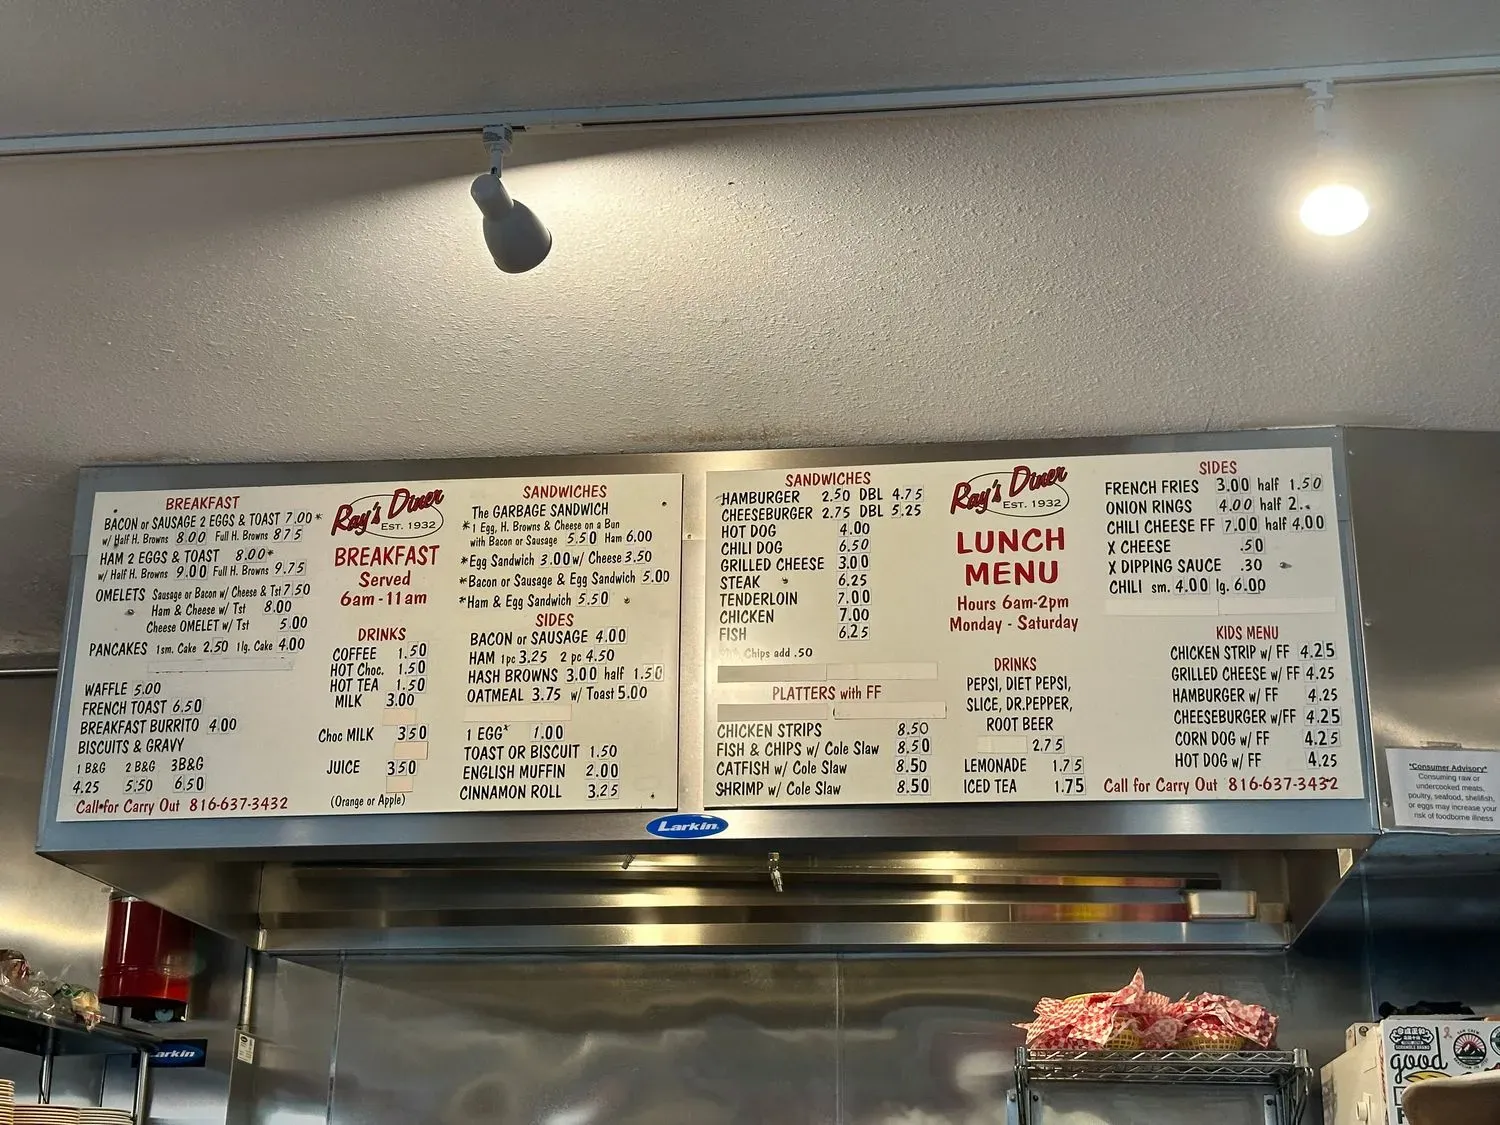 BREAKFAST
BACON or SAUSAGE 2 EGGS & TOAST 7.00*
w/ Half H. Browns 8.00 Full H. Browns 8.75
HAM 2 EGGS & TOAST 8.00*
w/ Half H. Browns 9.00 Full H. Browns 9.75
OMELETS Sausage or Bacon w/ Cheese & Tst 7.50
Ham & Cheese w/ Tst 8.00
Cheese OMELET w/ Tst 5.00
PANCAKES 1sm. Cake 2.50 1lg. Cake 4.00
WAFFLE 5.00
FRENCH TOAST 6.50
BREAKFAST BURRITO 4.00
BISCUITS & GRAVY
1 B&G 2 B&G 3B&G
4.25 5.50 6.50
Call for Carry Out 816-637-3432
Ray's Diner
EST. 1932
BREAKFAST
Served
6am-11am
DRINKS
COFFEE 1.50
HOT Choc. 1.50
HOT TEA 1.50
MILK 3.00
Choc MILK 3.50
JUICE 3.50
(Orange or Apple)
SANDWICHES
The GARBAGE SANDWICH
*1 Egg, H. Browns & Cheese on a Bun
with Bacon or Sausage 5.50 Ham 6.00
*Egg Sandwich 3.00 w/ Cheese 3.50
*Bacon or Sausage & Egg Sandwich 5.00
*Ham & Egg Sandwich 5.50
SIDES
BACON or SAUSAGE 4.00
HAM 1pc 3.25 2 pc 4.50
HASH BROWNS 3.00 half 1.50
OATMEAL 3.75 w/ Toast 5.00
1 EGG* 1.00
TOAST OR BISCUIT 1.50
ENGLISH MUFFIN 2.00
CINNAMON ROLL 3.25
SANDWICHES
HAMBURGER 2.50 DBL 4.75
CHEESEBURGER 2.75 DBL 5.25
HOT DOG 4.00
CHILI DOG 6.50
GRILLED CHEESE 3.00
STEAK 6.25
TENDERLOIN 7.00
CHICKEN 7.00
FISH 6.25
Chips add .50
PLATTERS with FF
CHICKEN STRIPS 8.50
FISH & CHIPS w/ Cole Slaw 8.50
CATFISH w/ Cole Slaw 8.50
SHRIMP w/ Cole Slaw 8.50
Ray's Diner
EST. 1932
LUNCH
MENU
Hours 6am-2pm
Monday - Saturday
DRINKS
PEPSI, DIET PEPSI,
SLICE, DR.PEPPER,
ROOT BEER
2.75
LEMONADE 1.75
ICED TEA 1.75
SIDES
FRENCH FRIES 3.00 half 1.50
ONION RINGS 4.00 half 2.
CHILI CHEESE FF 7.00 half 4.00
X CHEESE .50
X DIPPING SAUCE .30
CHILI sm. 4.00 lg. 6.00
KIDS MENU
CHICKEN STRIP w/ FF 4.25
GRILLED CHEESE w/ FF 4.25
HAMBURGER w/ FF 4.25
CHEESEBURGER w/FF 4.25
CORN DOG w/ FF 4.25
HOT DOG w/ FF 4.25
Call for Carry Out 816-637-3432
*Consumer Advisory*
Consuming raw or
undercooked meats,
poultry, seafood, shellfish,
or eggs may increase your
risk of foodborne illness
Larkin
arkin
good